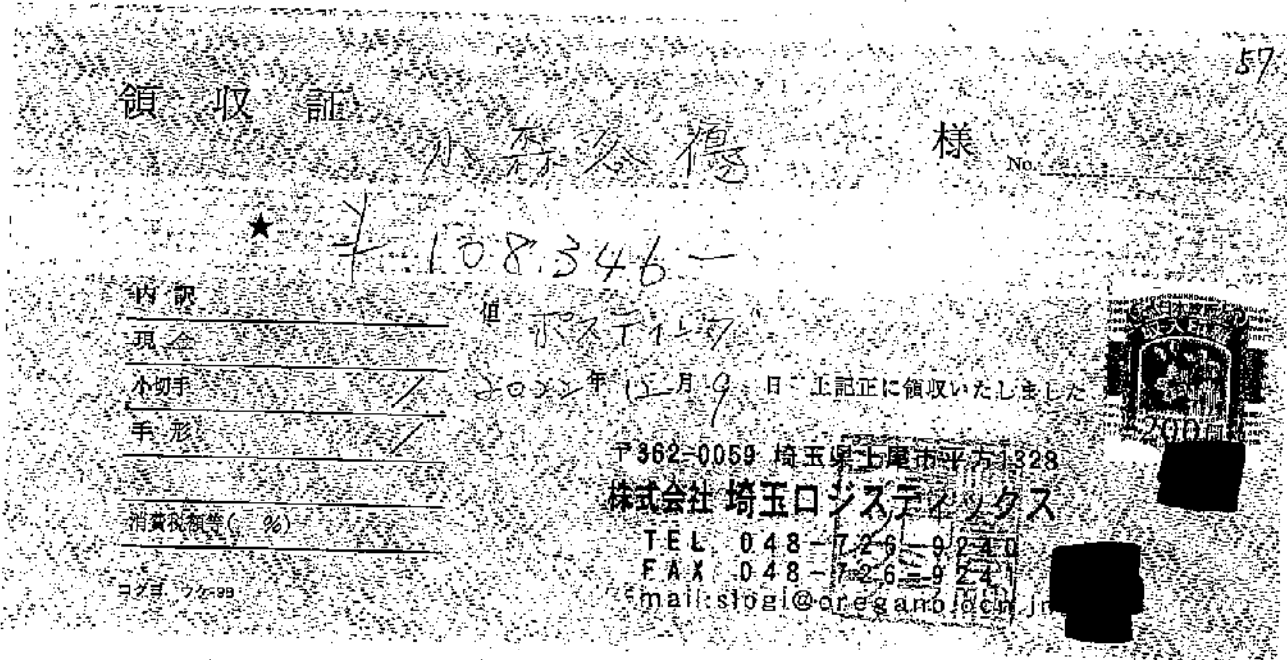 57
領収証
小森谷優 様 No.
★ ¥108,346-
内訳
現金
小切手
手形
消費税額等( %)
コクヨ ウケ-98
但 ポスティング
2022年12月9日 上記正に領収いたしました
200円
〒362-0059 埼玉県上尾市平方1328
株式会社 埼玉ロジスティックス
TEL 048-726-9240
FAX 048-726-9241
mail:slogi@oregano.ocn.jp